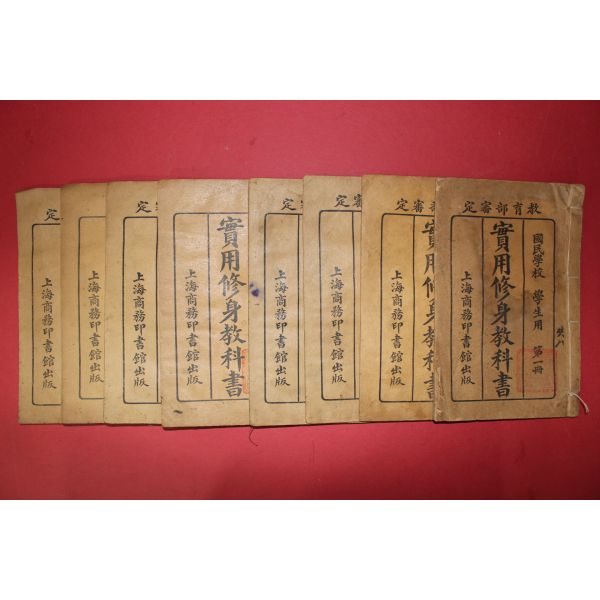 教育部審定
國民學校 學生用 第一冊
實用修身教科書
上海商務印書館出版
部審定
實用修身教科書
上海商務印書館出版
審定
上海商務印書館出版
定
上海商務印書館出版
實用修身教科書
上海商務印書館出版
審定
上海商務印書館出版
定
上海商務印書館出版
定
上海商務印書館出版